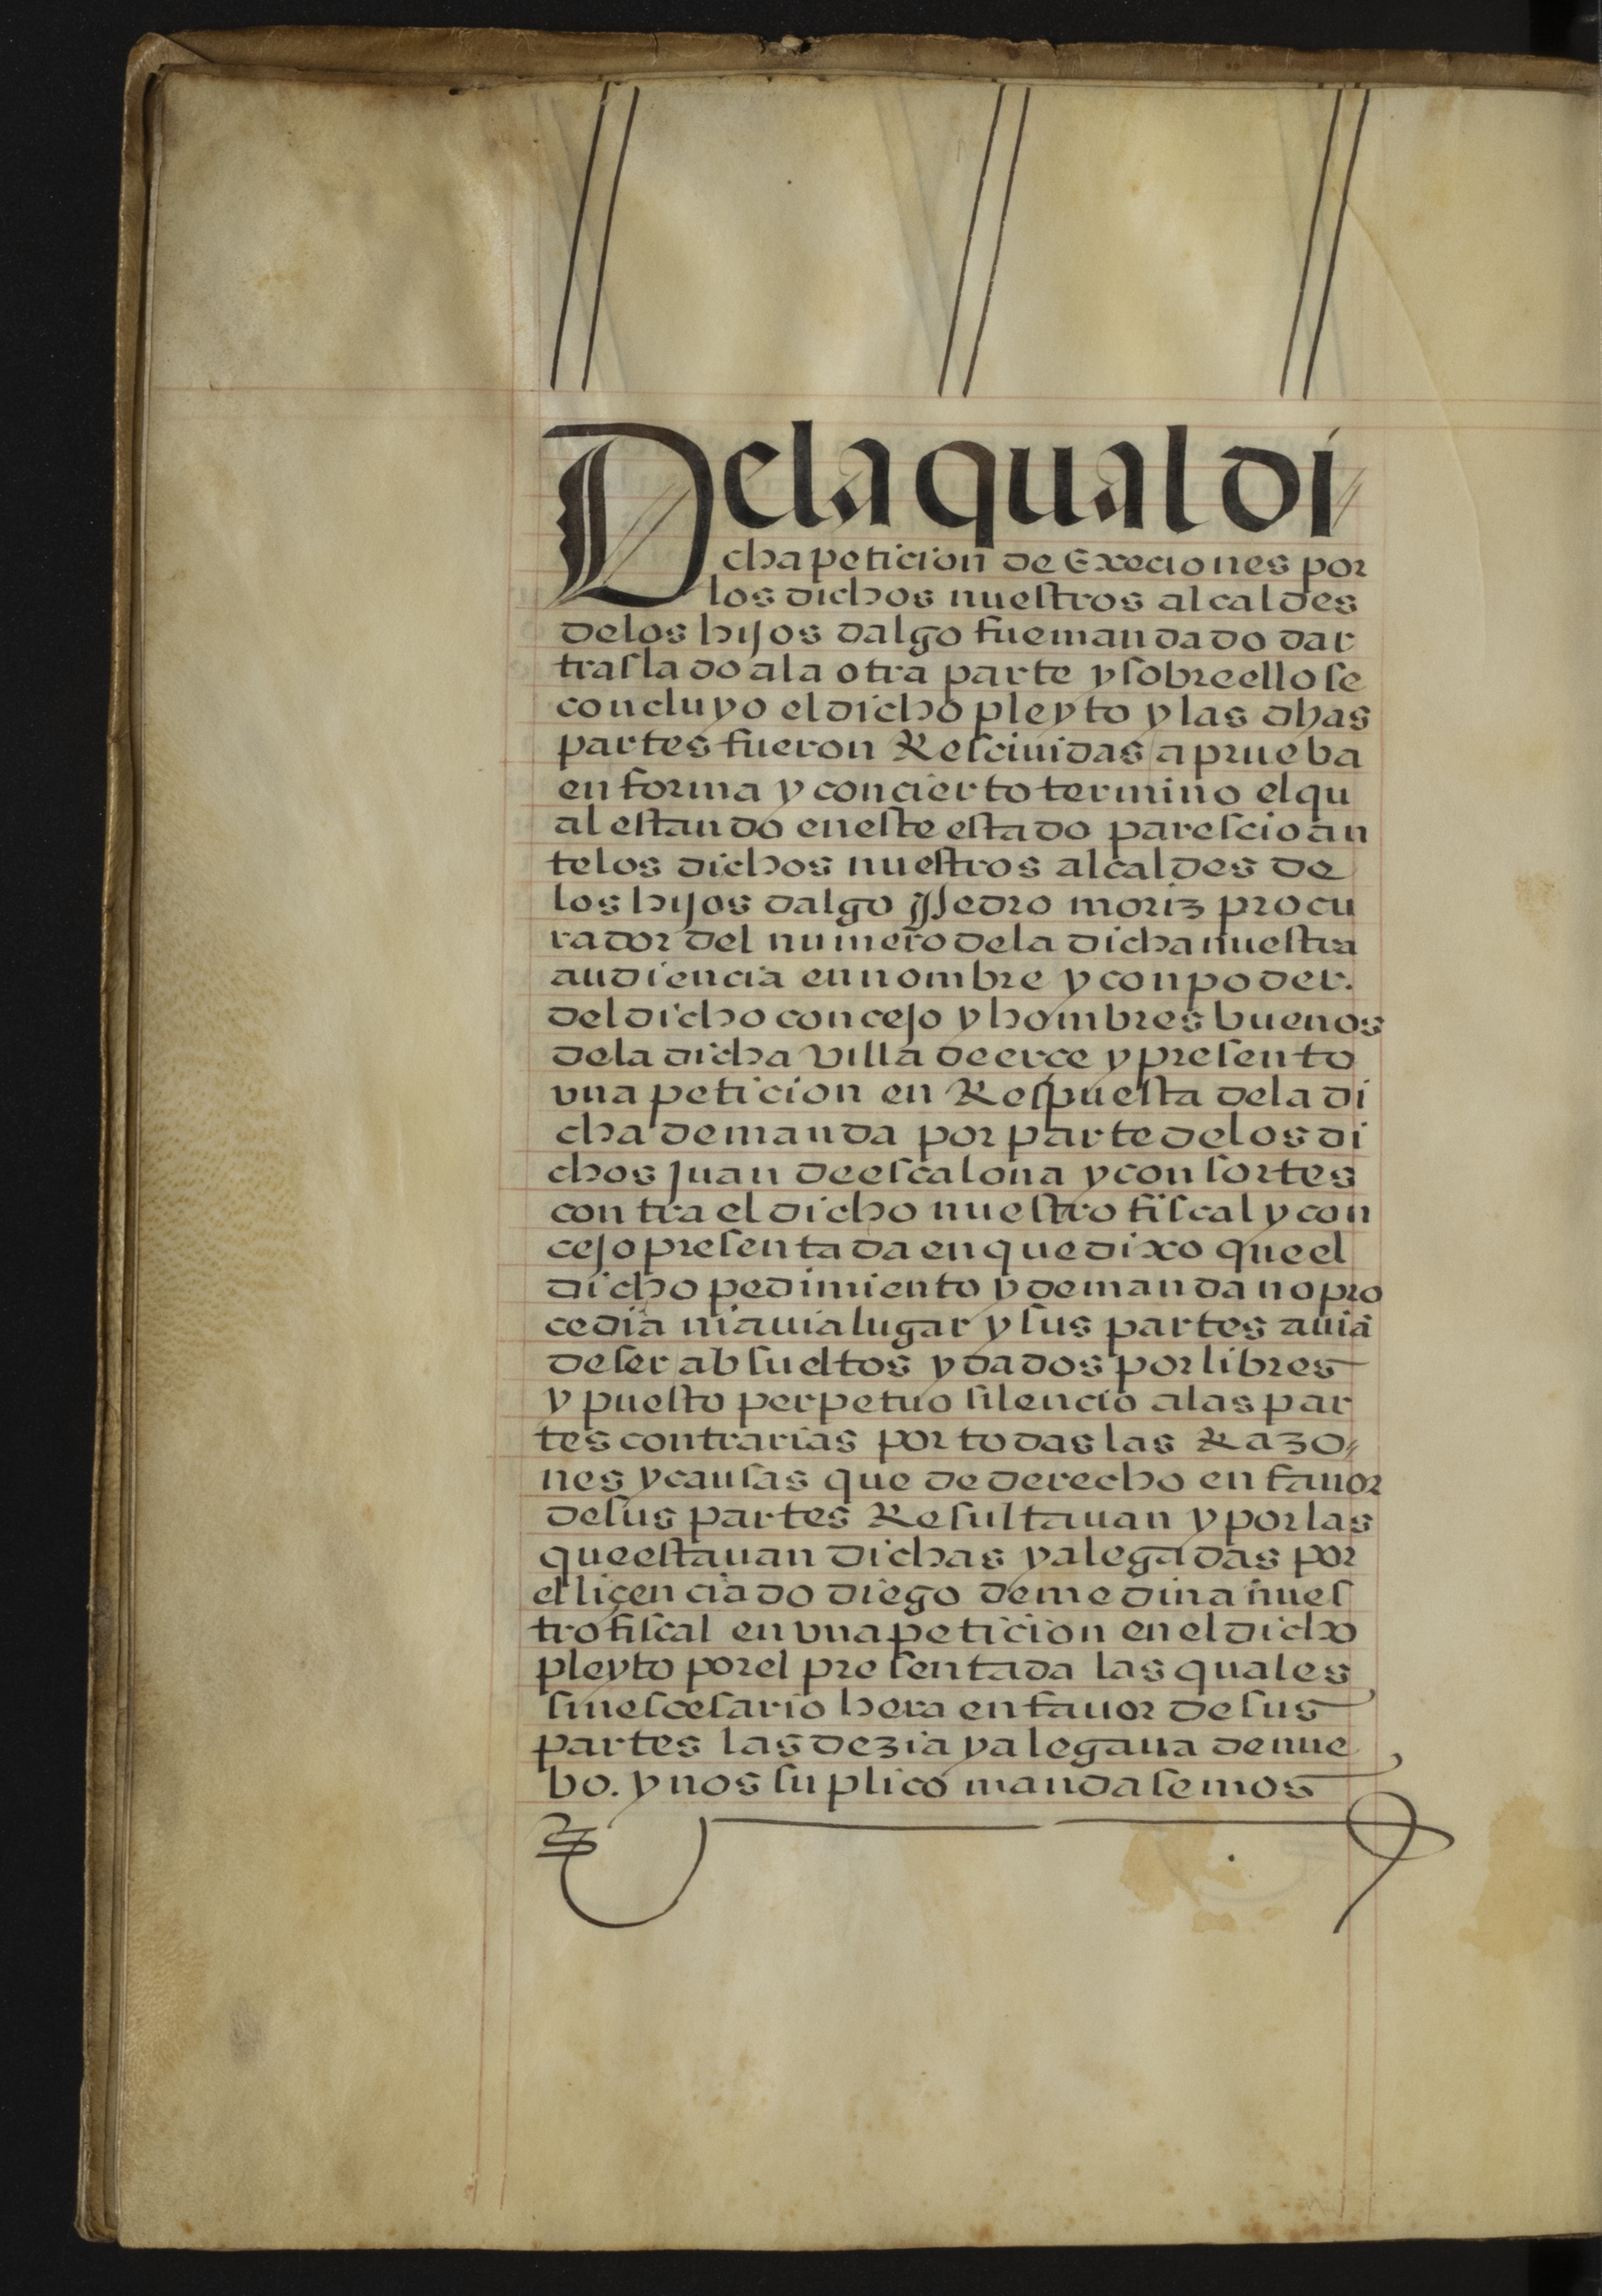 Dela qual di
cha peticion de Execiones por
los dichos nuestros alcaldes
delos hijos dalgo fue mandado dar
traslado ala otra parte y sobre ello se
concluyo el dicho pleyto y las dhas
partes fueron Resciuidas a prueba
en forma y con cierto termino el qu
al estando en este estado parescio an
te los dichos nuestros alcaldes de
los hijos dalgo Pedro moriz procu
rador del numero dela dicha nuestra
audiencia en nombre y con poder.
del dicho concejo y hombres buenos
dela dicha villa de erce y presento
vna peticion en Respuesta dela di
cha demanda por parte delos di
chos juan de escalona y consortes
contra el dicho nuestro fiscal y con
cejo presentada en que dixo que el
dicho pedimiento y demanda no pro
cedia ni auia lugar y sus partes auiã
de ser absueltos y dados por libres
y puesto perpetuo silencio alas par
tes contrarias por todas las Razo//
nes y causas que de derecho en fauor
de sus partes Resultauan y por las
que estauan dichas y alegadas por
el liçenciado diego de medina nues
tro fiscal en vna peticion en el dicho
pleyto por el presentada las quales
si nescesario hera en fauor de sus
partes las dezia y alegaua de nue
bo. y nos suplico mandasemos